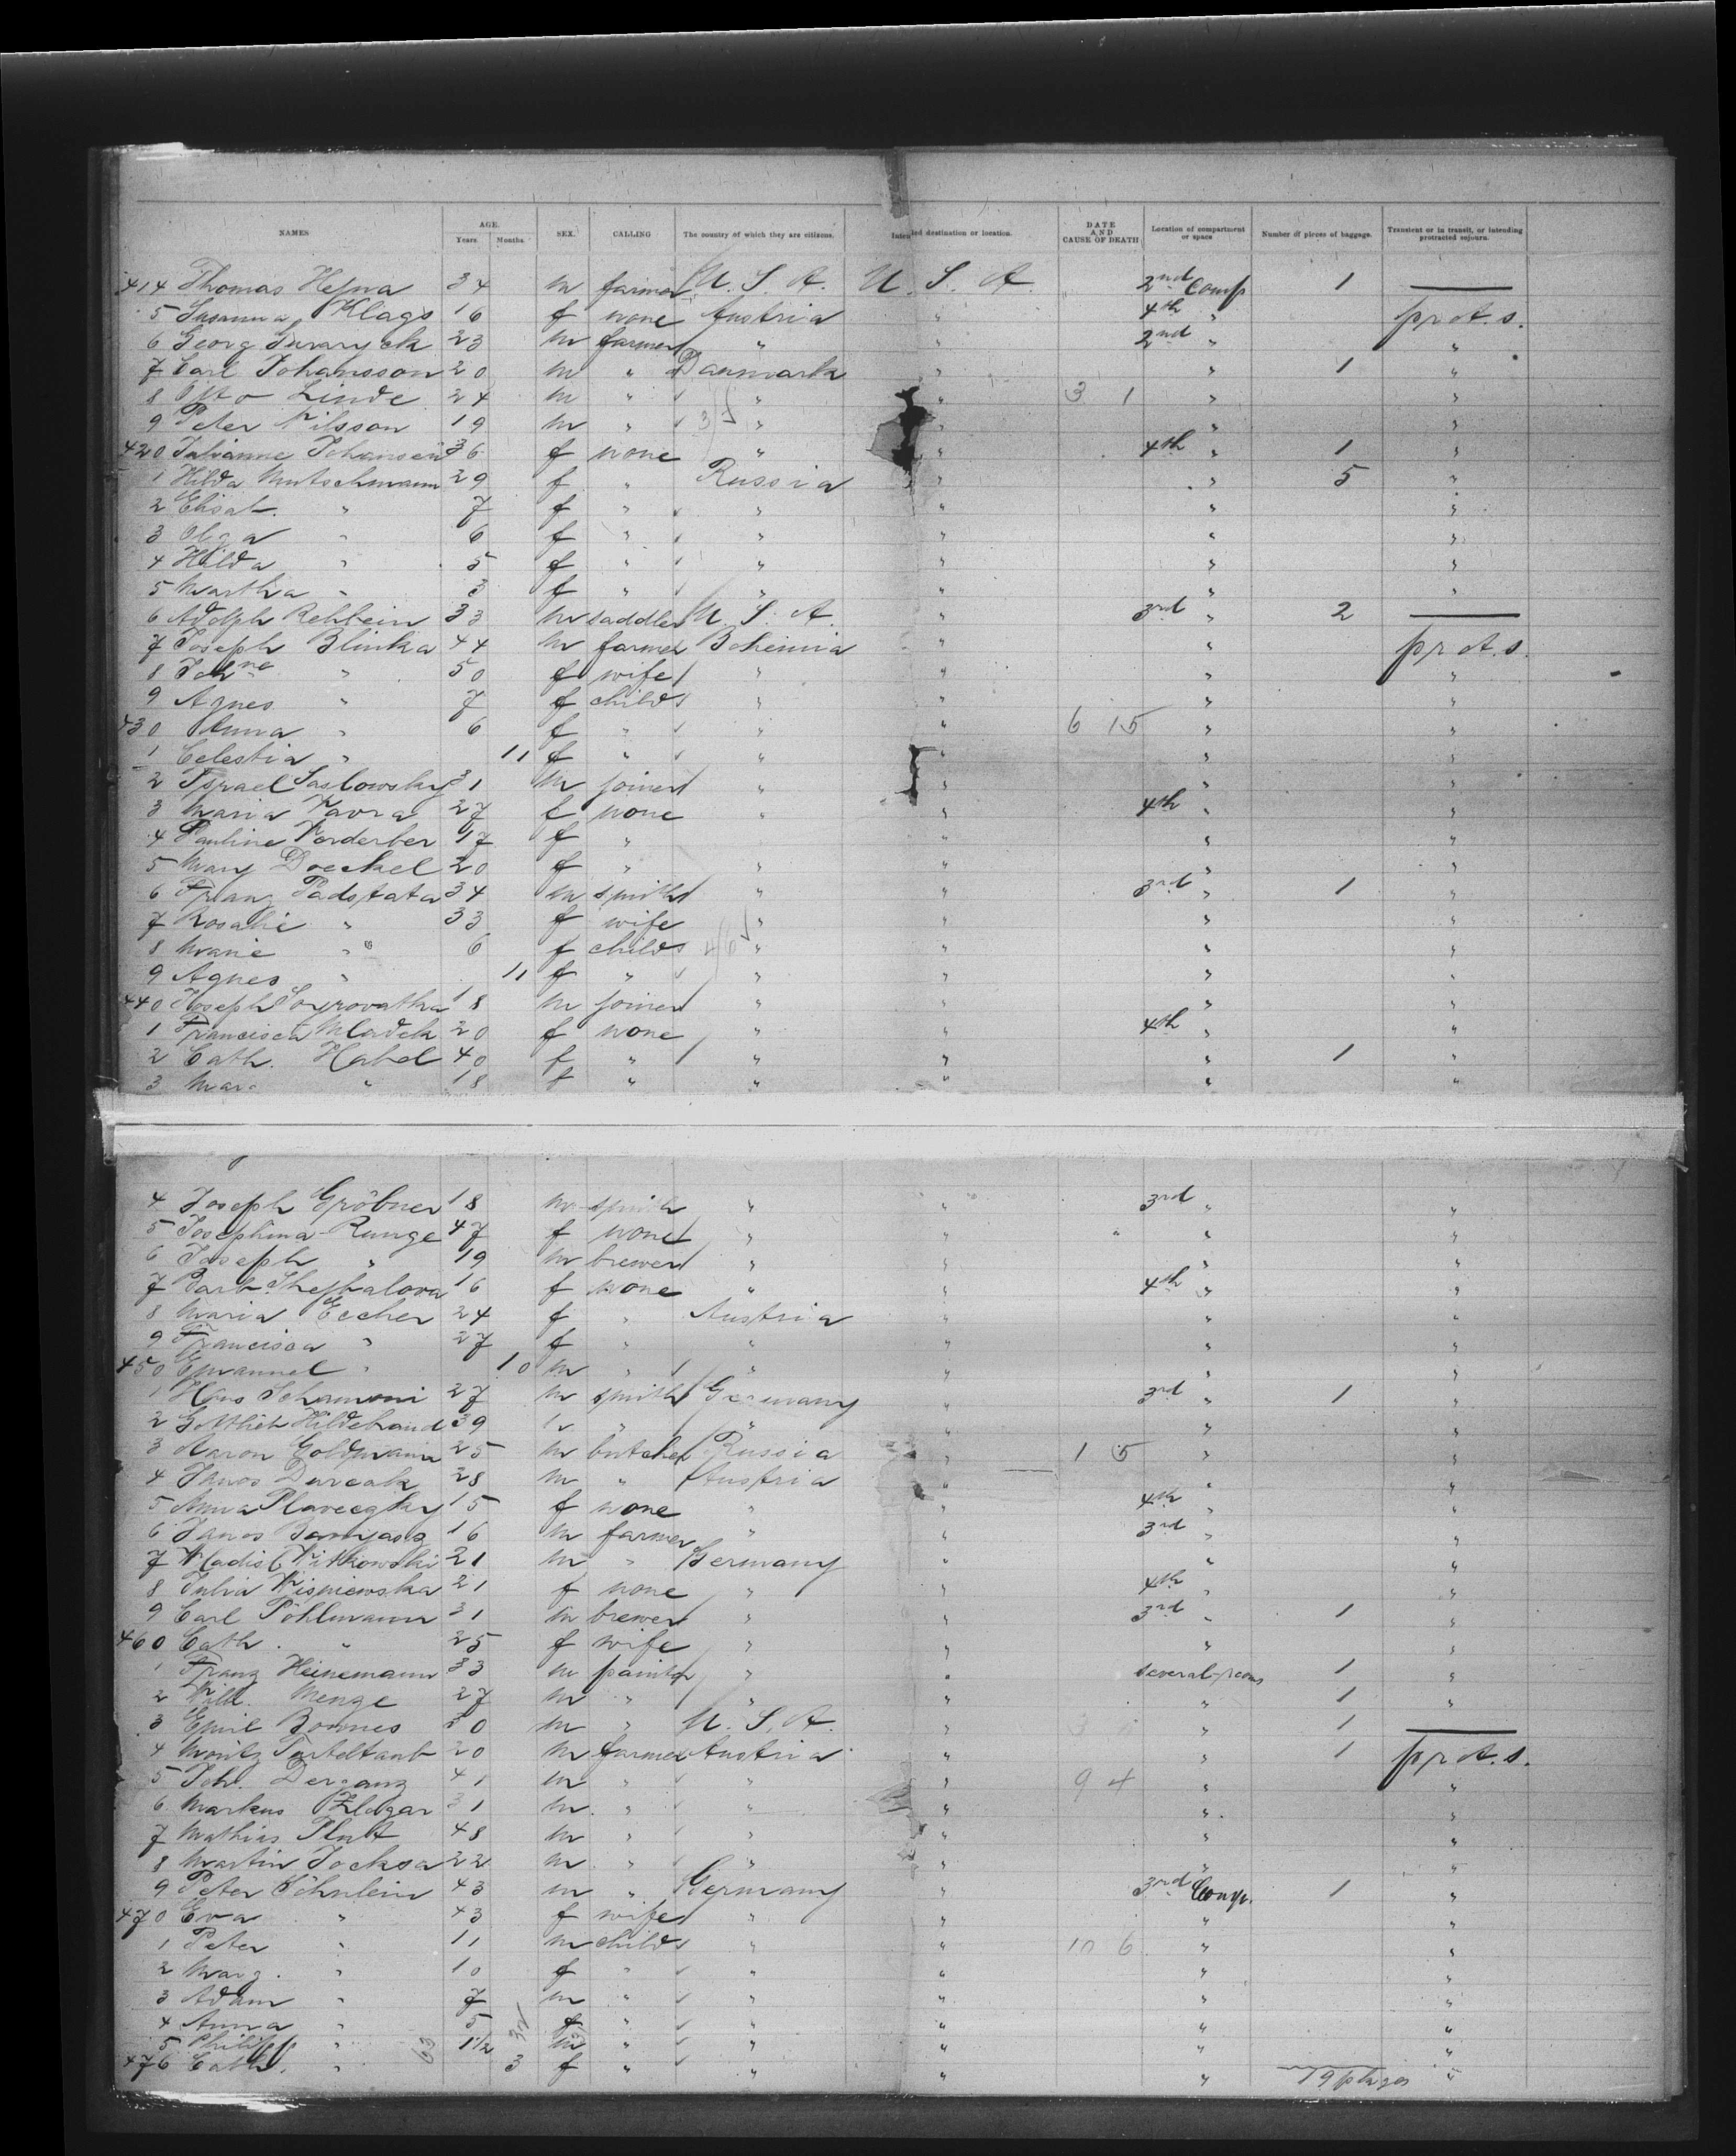 NAMES AGE. Years Months SEX. CALLING The country of which they are citizens. Intended destination or location. DATE AND CAUSE OF DEATH Location of compartment or space Number of pieces of baggage. Transient or in transit, or intending protracted sojourn.
414 Thomas 34 m farmer U. S. A. U. S. A. 2nd Comp 1 —
5 Susanna Klags 16 f none Austria " 4th " prot. s.
6 Georg 23 m farmer " " 2nd " "
7 Carl Johansson 20 m " Danmark " " 1 "
8 Otto Linde 24 m " " " 3 1 " "
9 Peter Nilsson 19 m " " " " "
420 Julianne Johansen 36 f none " " 4th " 1 "
1 Hilda Mutschmann 29 f " Russia " " 5 "
2 Elisab. " 7 f " " " " "
3 Olga " 6 f " " " " "
4 Hilda " 5 f " " " " "
5 Martha " 3 f " " " " "
6 Adolph Rehbein 33 m saddler U. S. A. " 3rd " 2 —
7 Joseph Blinka 44 m farmer Bohemia " " prot. s.
8 Johne " 50 f wife " " " "
9 Agnes " 7 f childs " " " "
430 Anna " 6 f " " " 6 15 " "
1 Celestia " 11 f " " " " "
2 Israel Saslowsky 31 m joiner " " " "
3 Maria Vavra 27 f none " " 4th " "
4 Pauline Vorderber 17 f " " " " "
5 Mary Doeckel 20 f " " " " "
6 Franz Padstata 34 m smith " " 3rd " 1 "
7 Rosalie " 33 f wife " " " "
8 Marie " 6 f childs " " " "
9 Agnes " 11 f " " " " "
440 Joseph 18 m joiner " " " "
1 Francisca Mladek 20 f none " " 4th " "
2 Cath. Habel 40 f " " " " 1 "
3 " 18 f " " " " "
4 Joseph Gröbner 18 m smith " " 3rd " "
5 Josephina Runge 47 f none " " " "
6 Joseph " 19 m brewer " " " "
7 Barb. 16 f none " " 4th " "
8 Maria Eccher 24 f " Austria " " "
9 Francisca " 27 f " " " " "
450 Emannel " 10 m " " " " "
1 Hans Schamoni 27 m smith Germany " 3rd " 1 "
2 Gottlieb Hildebrand 39 " " " " "
3 Aaron Goldmann 25 m butcher Russia " 1 5 " "
4 Janos 28 m " Austria " " "
5 Anna 15 f none " " 4th " "
6 Janos 16 m farmer " " 3rd " "
7 Wladisl. Witkowski 21 m " Germany " " "
8 Julia Wisniewska 21 f none " " 4th " "
9 Carl Pöhlmann 31 m brewer " " 3rd " 1 "
460 Cath. " 25 f wife " " " "
1 Franz Heinemann 33 m painter " " several rooms 1 "
2 Wilh. Menge 27 m " " " " 1 "
3 Emil Bonnes 30 m " U. S. A. " " 1 —
4 Moritz Turteltaub 20 m farmer Austria " " 1 prot. s.
5 Joh. Derganz 41 m " " " 9 4 " "
6 Markus Zlogar 31 m " " " " "
7 Mathias Plut 48 m " " " " "
8 Martin Jocksa 22 m " " " " "
9 Peter Söhnlein 43 m " Germany " 3rd Comp. 1 "
470 Eva " 43 f wife " " " "
1 Peter " 11 m childs " " 10 6 " "
2 Marg. " 10 f " " " " "
3 Adam " 7 m " " " " "
4 Anna " 5 f " " " " "
5 Philipp " 1 1/2 m " " " " "
476 Cath. " 3 f " " " " "
63 32